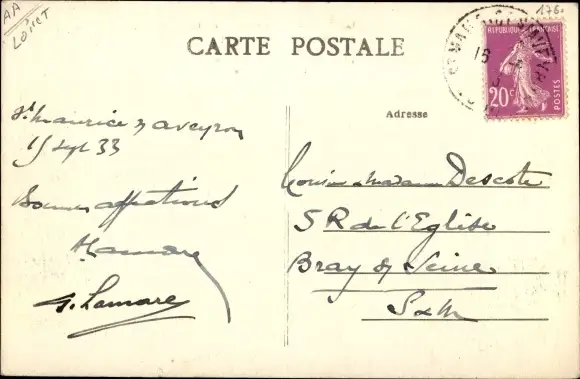 AA
LOIRET
176.
CARTE POSTALE
REPUBLIQUE FRANÇAISE
20c
POSTES
Adresse
St Maurice s/ aveyron
15 Sept 33
Bonnes affections
HLamare
G. Lamare
Monsieur et Madame Descote
5 R de l'Eglise
Bray s/ Seine
S & M